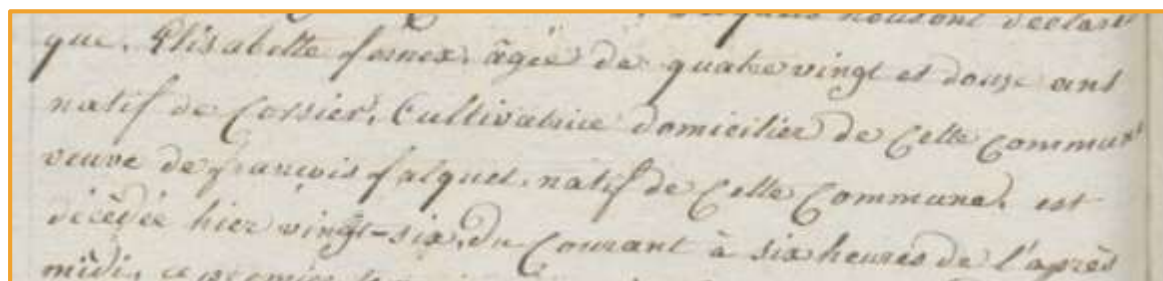 nousont déclaré
que, Elisabette fornex, âgée de quatre vingt et douze ans
natif de Corsier, Cultivatrice domicilier de Cette Commune
veuve de françois falquet, natif de Cette Commune, est
décédée hier vingt-six, du Courant à six heures de l'après
midi, ce premier